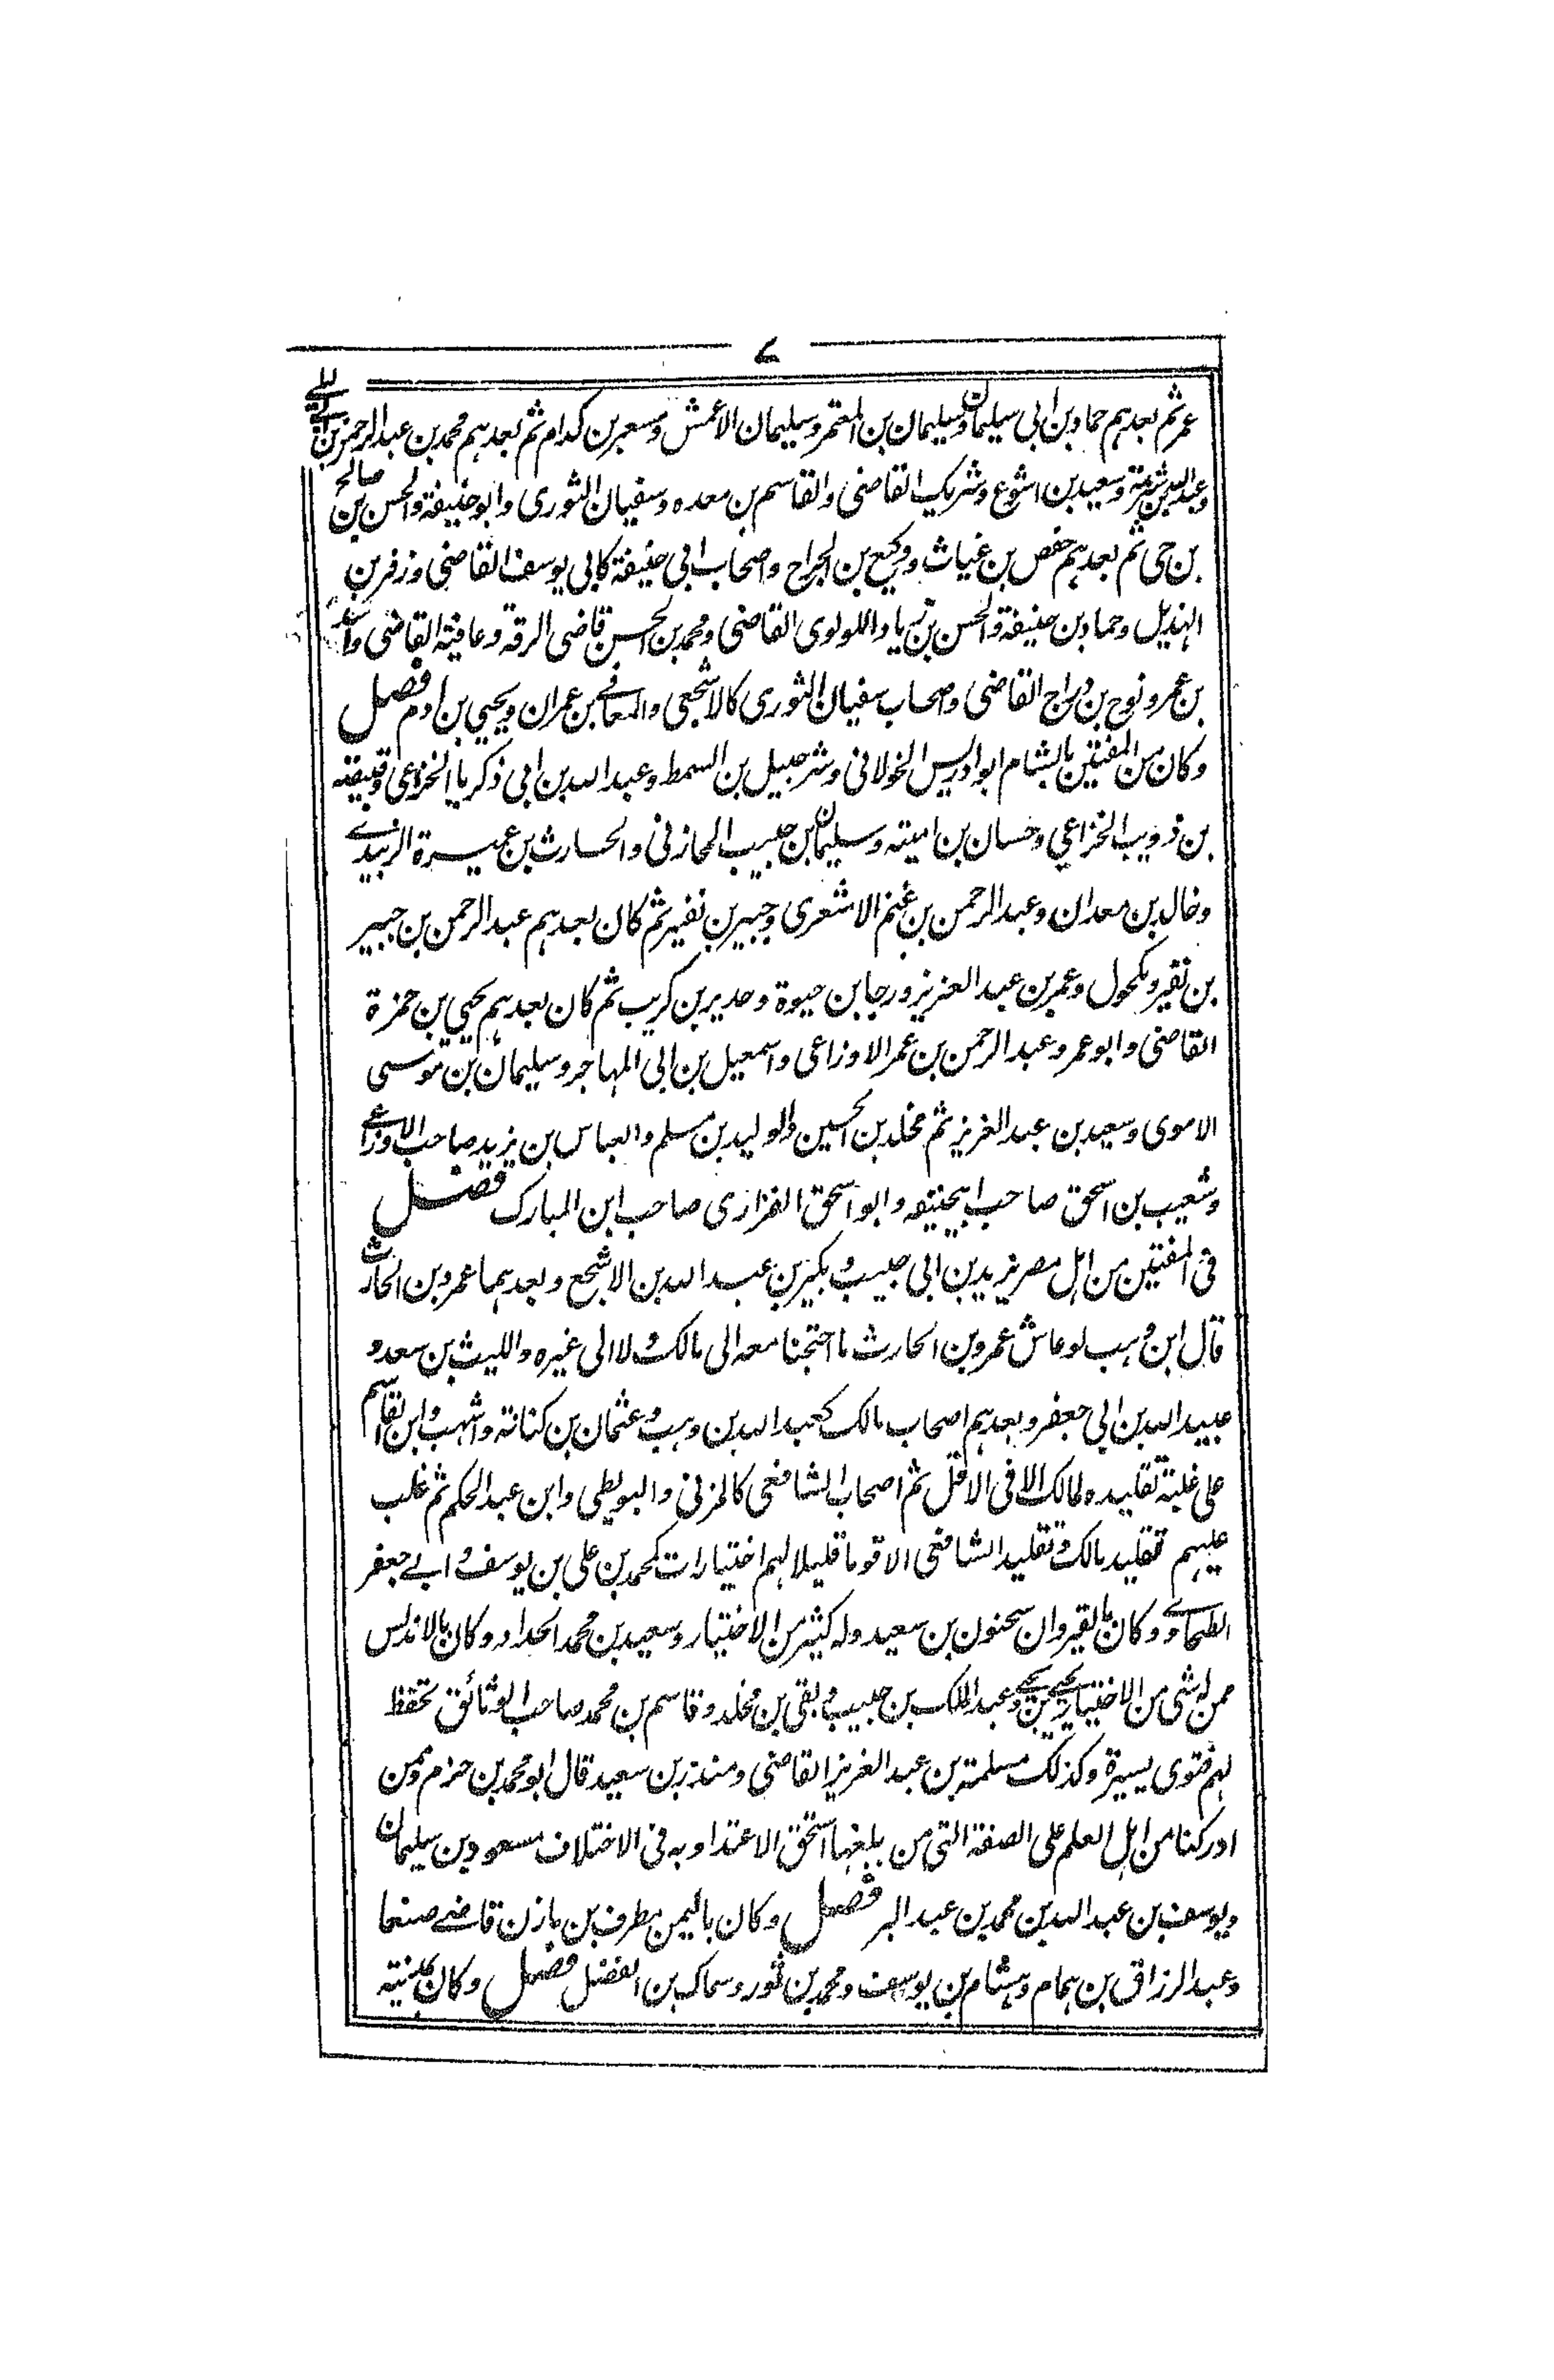 ٧
عمر ثم بعدهم حماد بن ابی سلیمان وسلیمان بن المعتمر وسلیمان الاعمش ومسعر بن کدام ثم بعدهم محمد بن عبد الرحمن بن ابی لیلی
وعبد الله بن شبرمة وسعید بن اشوع وشریک القاضی والقاسم بن معده وسفیان الثوری وابو حنیفة والحسن بن صالح
بن حی ثم بعدهم حفص بن غیاث ووکیع بن الجراح واصحاب ابی حنیفة کابی یوسف القاضی وزفر بن
الهذیل وحماد بن حنیفة والحسن بن زیاد اللولوی القاضی ومحمد بن الحسن قاضی الرقة وعافیة القاضی واسد
بن عمر ونوح بن دراج القاضی واصحاب سفیان الثوری کالاشجعی والمعافی بن عمران ویحیی بن ادم فصل
وکان من المفتین بالشام ابو ادریس الخولانی وشرحبیل بن السمط وعبد الله بن ابی ذکریا الخزاعی وقبیصة
بن ذویب الخزاعی وحسان بن امیته وسلیمان بن حبیب المحازنی والحارث بن عمیرة الزبیدی
وخالد بن معدان وعبد الرحمن بن غنم الاشعری وجبیر بن نفیر ثم کان بعدهم عبد الرحمن بن جبیر
بن نفیر ومکحول وعمر بن عبد العزیز ورجا بن حیوة وحدیر بن کریب ثم کان بعدهم یحیی بن حمزة
القاضی وابو عمرو عبد الرحمن بن عمر الاوزاعی واسمعیل بن ابی المهاجر وسلیمان بن موسی
الاموی وسعید بن عبد العزیز ثم مخلد بن الحسین والولید بن مسلم والعباس بن یزید صاحب الاوزاعی
وشعیب بن اسحق صاحب ابیحنیفه وابو اسحق الفزاری صاحب ابن المبارک فصل
فی المفتین من اهل مصر یزید بن ابی حبیب وبکیر بن عبد الله بن الاشجع وبعدهما عمرو بن الحارث
قال ابن وهب لو عاش عمرو بن الحارث ما احتجنا معه الی مالک ولا الی غیره واللیث بن سعد و
عبید الله بن ابی جعفر وبعدهم اصحاب مالک کعبد الله بن وهب وعثمان بن کنانة واشهب وابن القاسم
علی غلبة تقلیده لمالک الا فی الاقل ثم اصحاب الشافعی کالمزنی والبویطی وابن عبد الحکم ثم غلب
علیهم تقلید مالک وتقلید الشافعی الا قوما قلیلا لهم اختیارات کمحمد بن علی بن یوسف وابی جعفر
الطحاوی وکان بالقیروان سحنون بن سعید وله کثیر من الاختیار وسعید بن محمد الحداد وکان بالاندلس
ممن له شی من الاختیار یحیی بن یحیی وعبد الملک بن حبیب وبقی بن مخلد وقاسم بن محمد صاحب الوثائق تحفظ
لهم فتوی یسیرة وکذلک مسلمة بن عبد العزیز القاضی ومنذر بن سعید قال ابو محمد بن حزم وممن
ادرکنا من اهل العلم علی الصفة التی من بلغها استحق الاعتداد به فی الاختلاف مسعود بن سلیمان
ویوسف بن عبد الله بن محمد بن عبد البر فصل وکان بالیمن مطرف بن مازن قاضی صنعا
وعبد الرزاق بن همام وهشام بن یوسف ومحمد بن ثور وسماک بن الفضل فصل وکان بمدینة